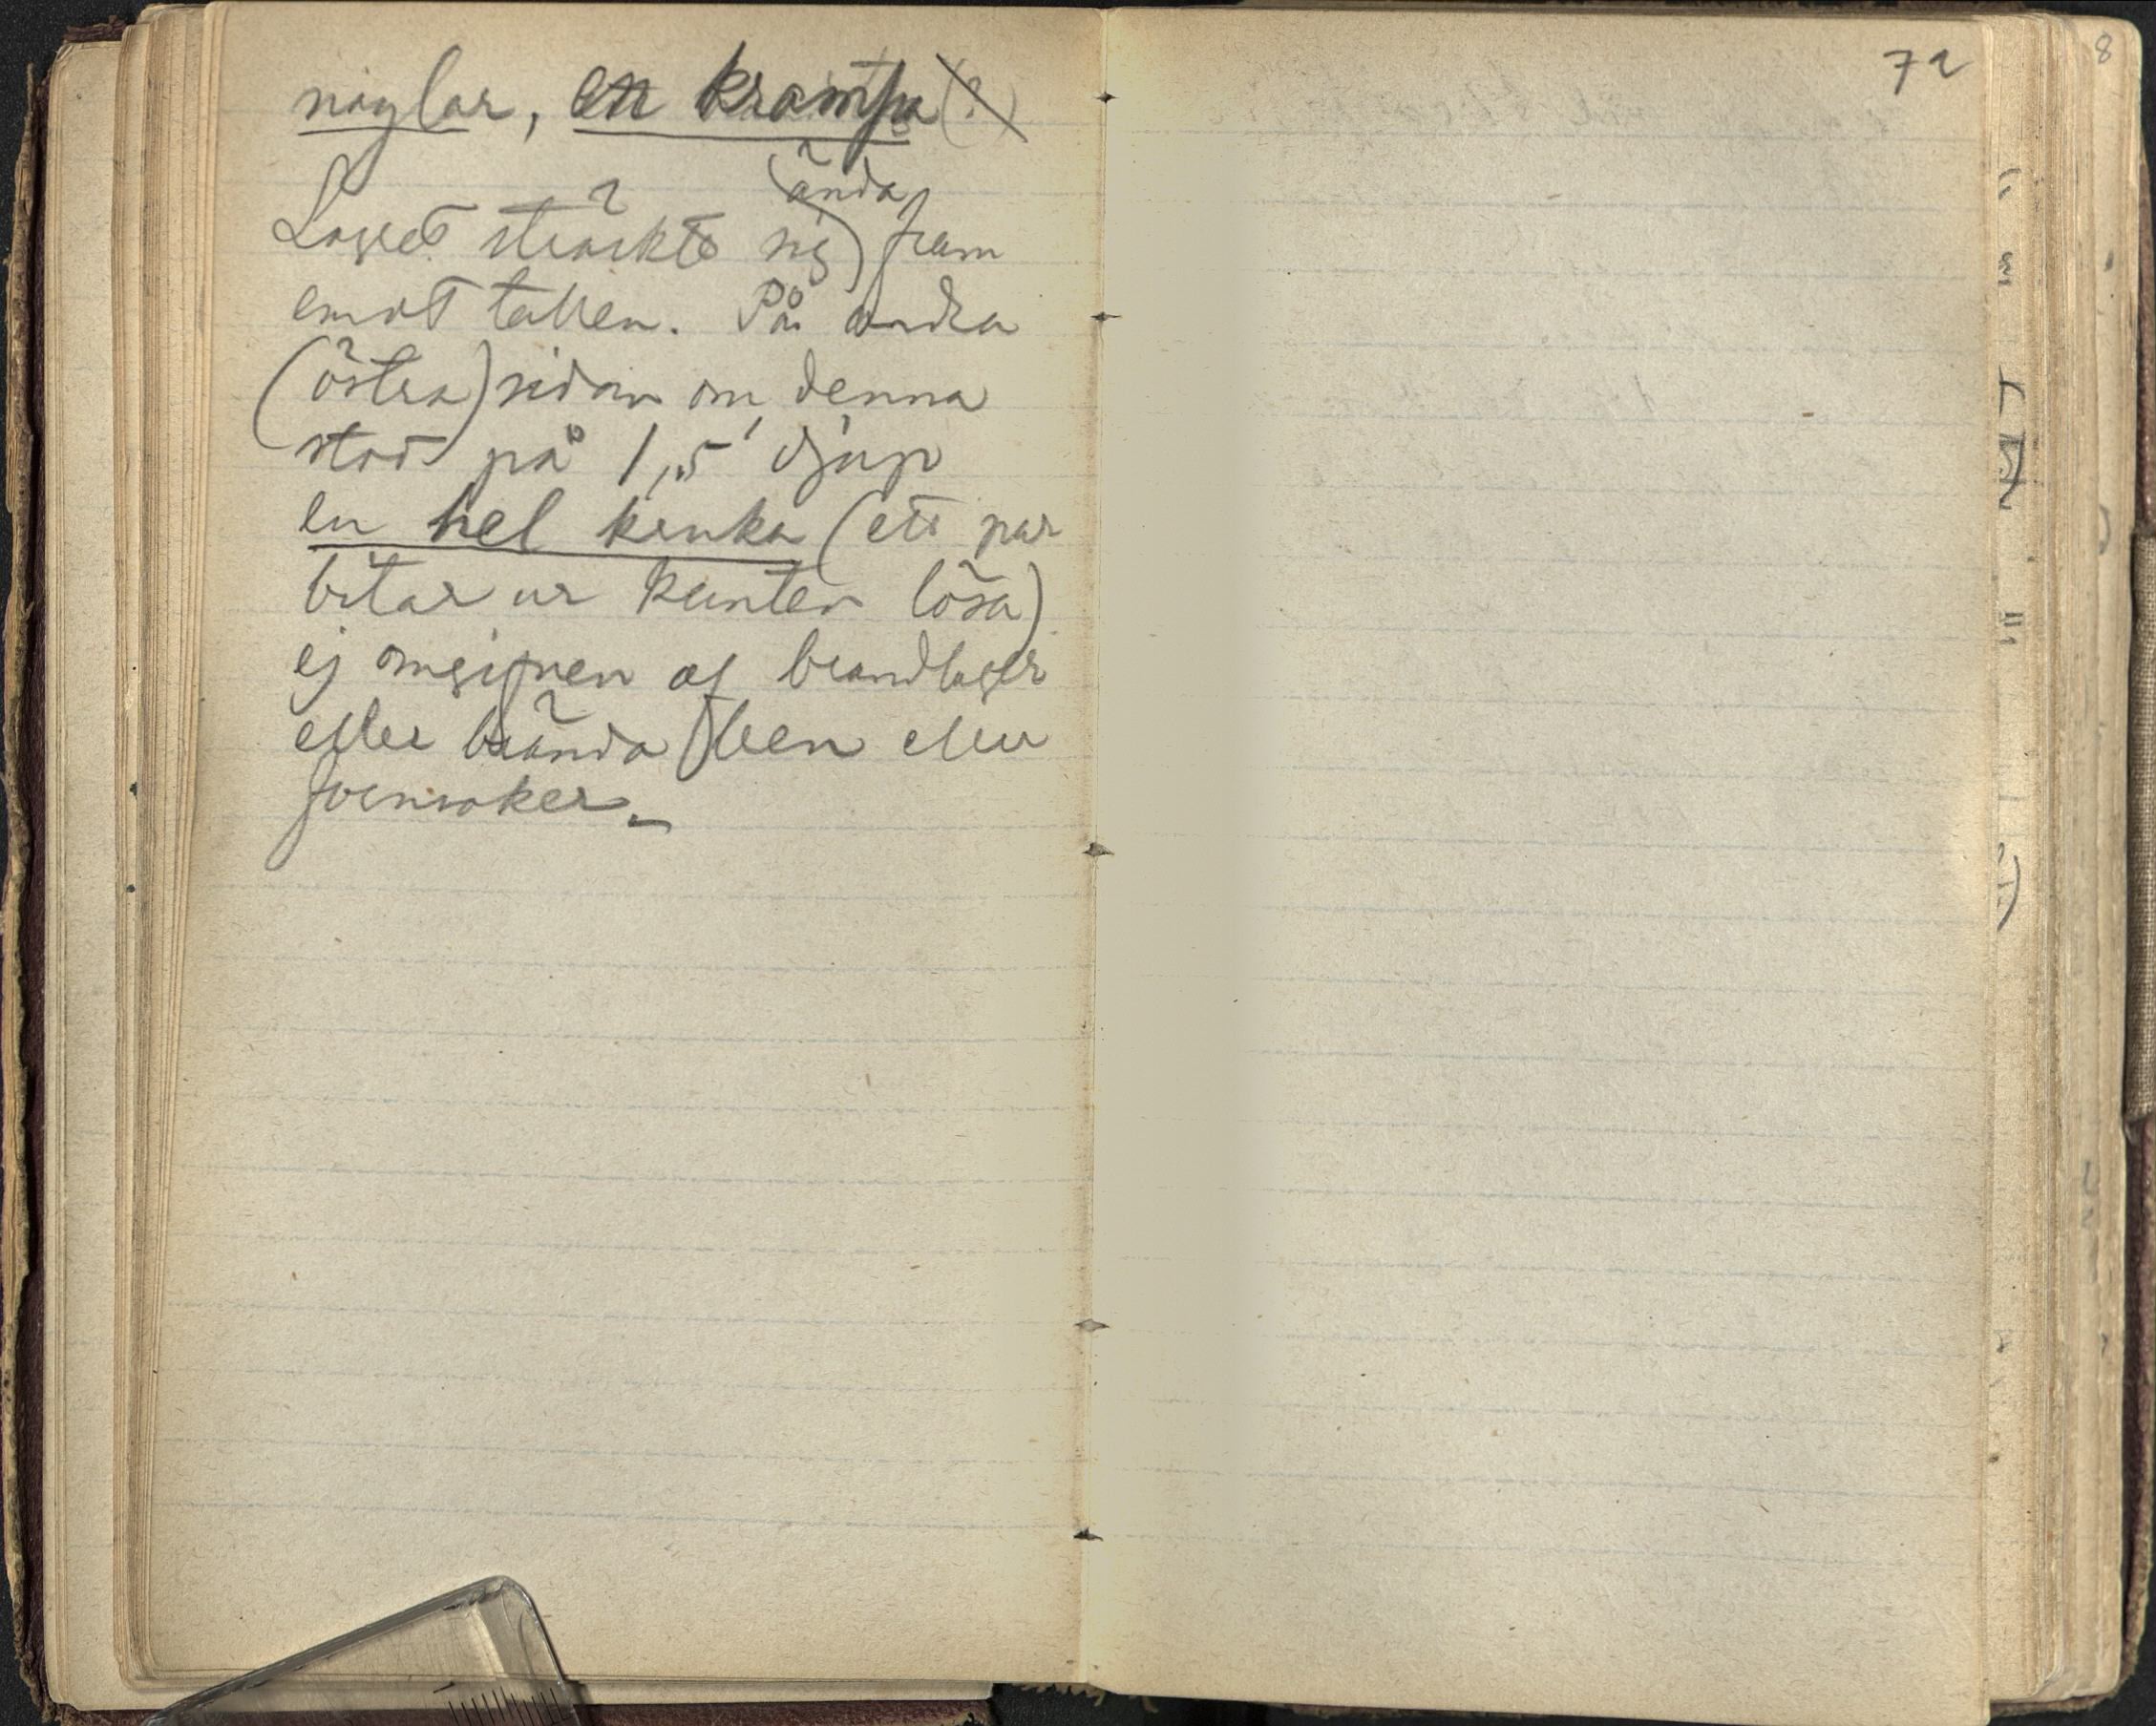 naglar, en krampa (?)
ända
Lagret sträckte sig fram
emot tallen. På andra
(östra) sidan om denna
stod på 1,5' djup
en hel kruka (ett par
bitar ur kanten lösa)
ej omgifven af brandlager
eller brända ben eller
fornsaker.
72
8